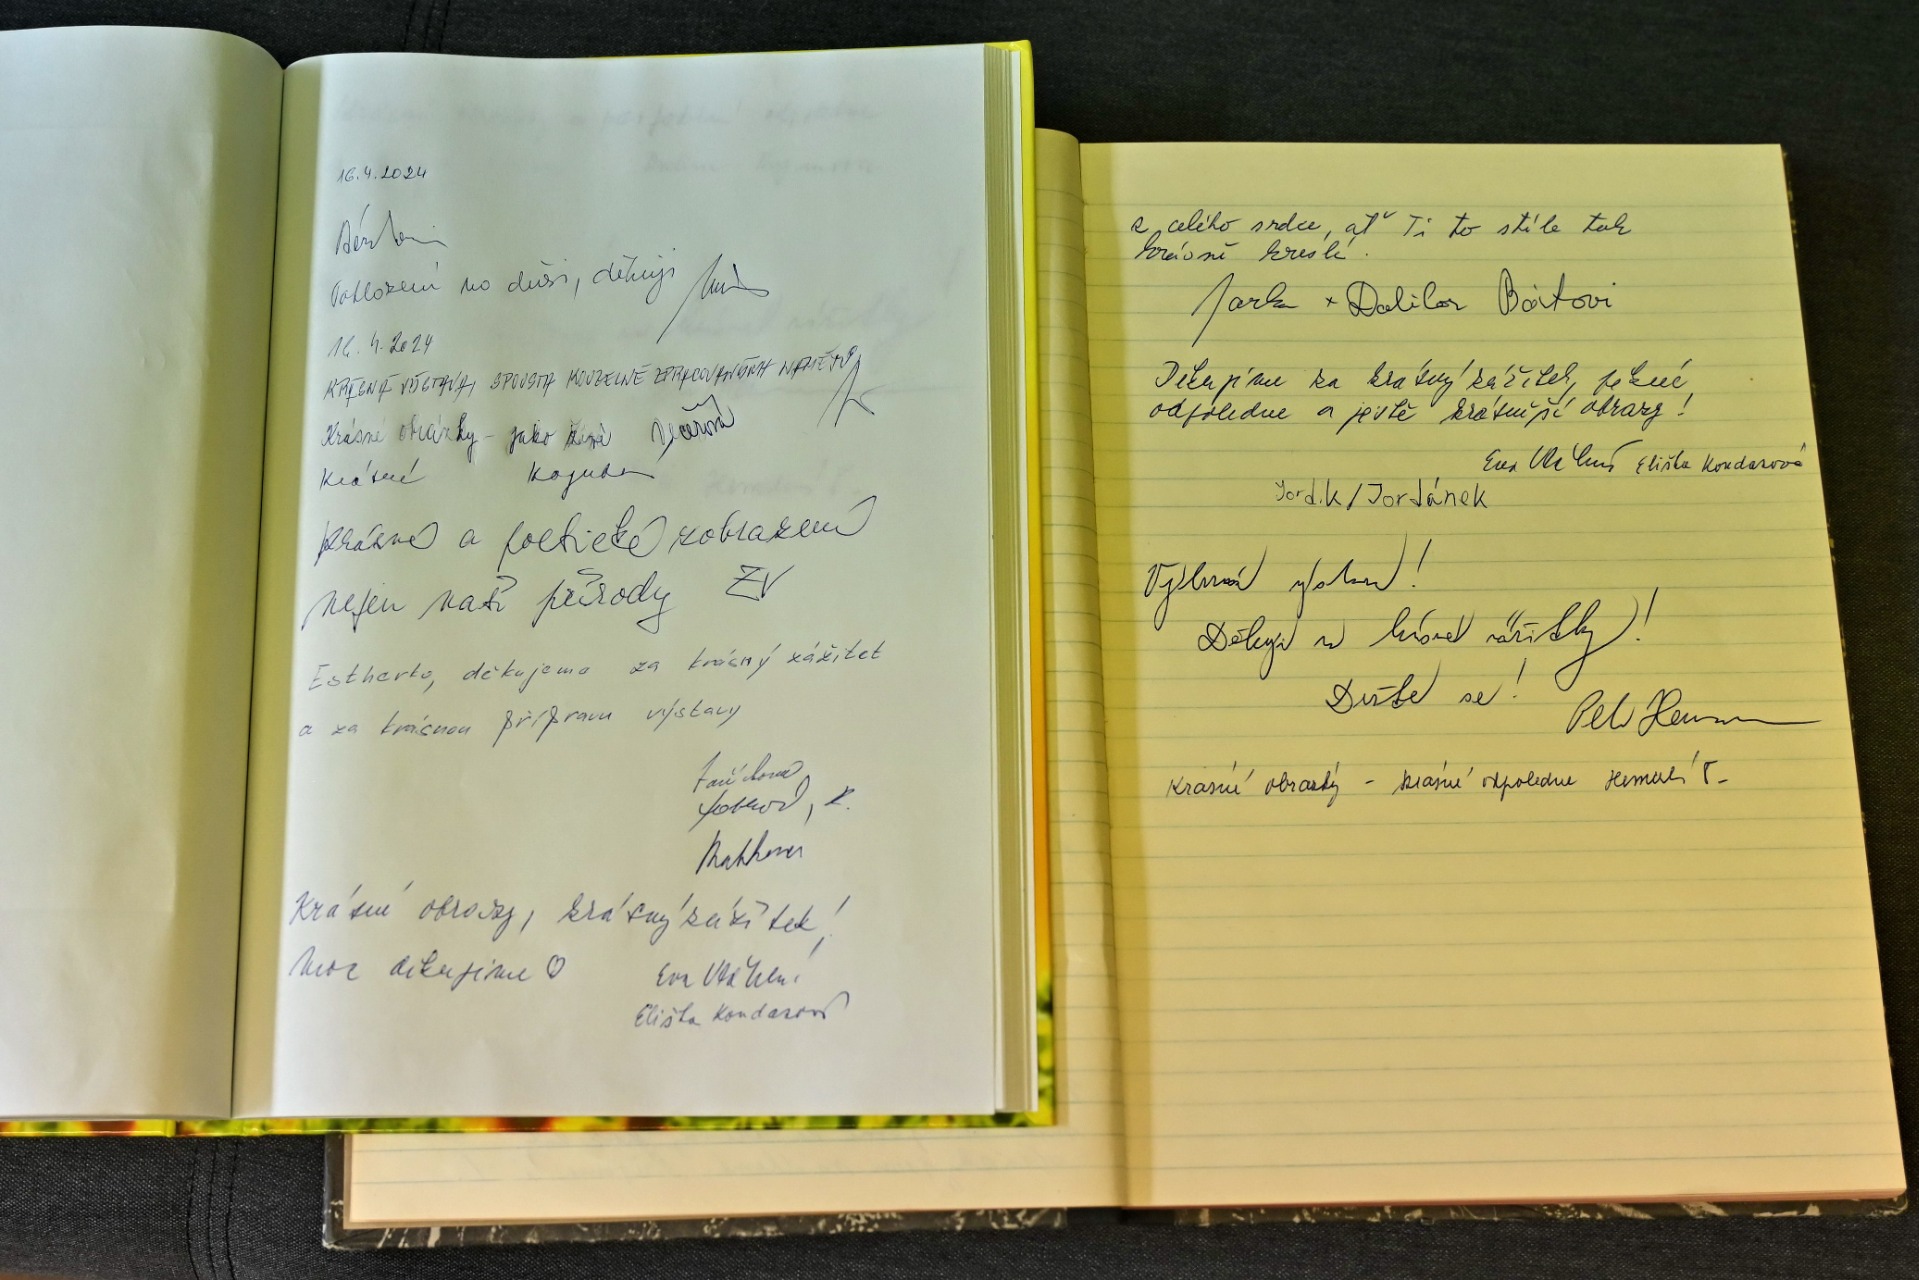 16.4.2024
Pohlazení na duši, děkuji
16.4.2024
KRÁSNÁ VÝSTAVA, SPOUSTA KOUZELNĚ ZPRACOVANÝCH NÁMĚTŮ
Krásné obrázky - jako živé
Krásné
krásné a poetické zobrazení
nejen naší přírody ZV
Estherko, děkujeme za krásný zážitek
a za krásnou přípravu výstavy
Krásné obrazy, krásný zážitek!
Moc děkujeme ♡ Eva
Eliška Kondasová
z celého srdce, ať Ti to stále tak
krásně kreslí.
Jarka + Dalibor Bártovi
Děkujeme za krásný zážitek, pěkné
odpoledne a ještě krásnější obrazy!
Eva Eliška Kondasová
Jordik/Jordánek
Výborná výstava!
Děkuji za krásné zážitky!
Držte se!
Petr
Krásné obrázky - krásné odpoledne